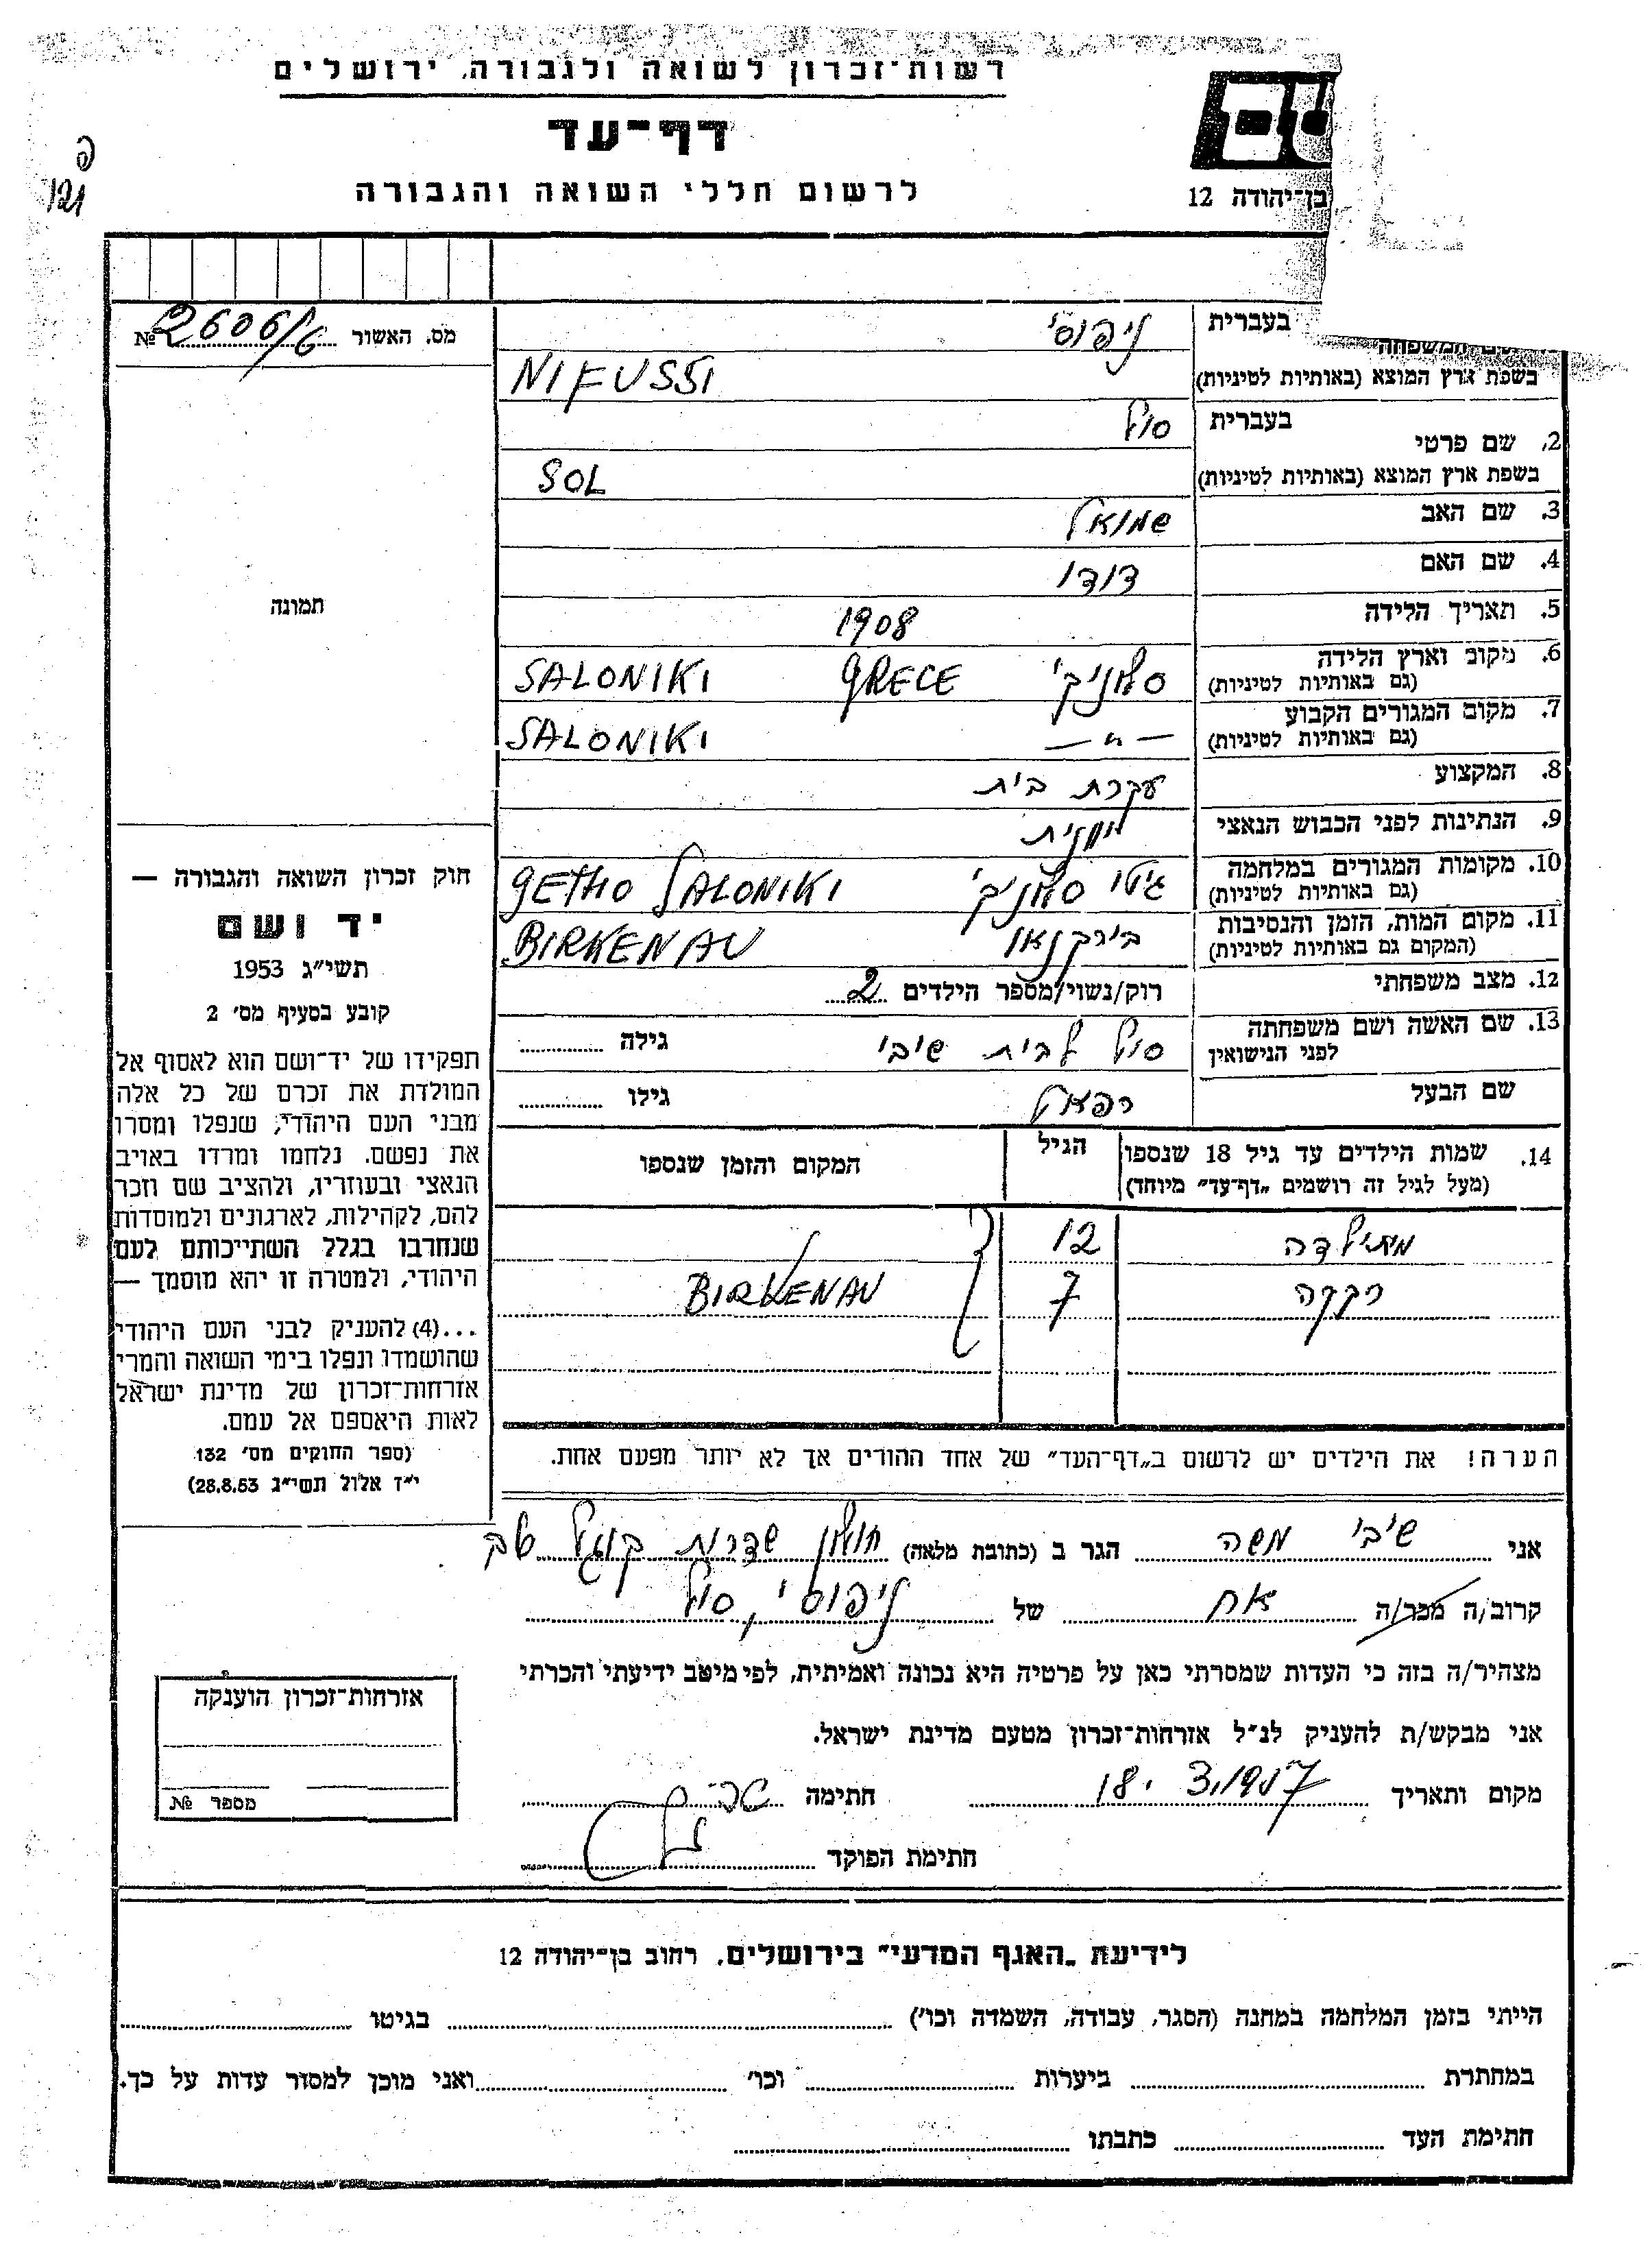 רשות-זכרון לשואה ולגבורה, ירושלים
דף-עד
לרשום חללי השואה והגבורה
בן-יהודה 12
121
מס. האשור № 2606/6
בעברית ניפוסי
שם המשפחה
בשפת ארץ המוצא (באותיות לטיניות) NIFUSSI
2. שם פרטי בעברית סול
בשפת ארץ המוצא (באותיות לטיניות) SOL
3. שם האב שמואל
4. שם האם דודו
5. תאריך הלידה 1908
6. מקום וארץ הלידה (גם באותיות לטיניות) סלוניקי GRECE SALONIKI
7. מקום המגורים הקבוע (גם באותיות לטיניות) — " — SALONIKI
8. המקצוע עקרת בית
9. הנתינות לפני הכבוש הנאצי יוונית
10. מקומות המגורים במלחמה (גם באותיות לטיניות) גיטו סלוניקי GETHO SALONIKI
11. מקום המות, הזמן והנסיבות (המקום גם באותיות לטיניות) בירקנאו BIRKENAU
12. מצב משפחתי רוק/נשוי/מספר הילדים 2
13. שם האשה ושם משפחתה לפני הנישואין סול לבית שיבי גילה
שם הבעל רפאל גילו
14. שמות הילדים עד גיל 18 שנספו הגיל המקום והזמן שנספו
(מעל לגיל זה רושמים „דף-עד" מיוחד)
מתילדה 12
רבקה 7 BIRKENAU
הערה! את הילדים יש לרשום ב„דף-העד" של אחד ההורים אך לא יותר מפעם אחת.
תמונה
חוק זכרון השואה והגבורה —
יד ושם
תשי"ג 1953
קובע בסעיף מס' 2
תפקידו של יד-ושם הוא לאסוף אל
המולדת את זכרם של כל אלה
מבני העם היהודי, שנפלו ומסרו
את נפשם. נלחמו ומרדו באויב
הנאצי ובעוזריו, ולהציב שם וזכר
להם, לקהילות, לארגונים ולמוסדות
שנחרבו בגלל השתייכותם לעם
היהודי, ולמטרה זו יהא מוסמך —
...(4) להעניק לבני העם היהודי
שהושמדו ונפלו בימי השואה והמרי
אזרחות-זכרון של מדינת ישראל
לאות היאספם אל עמם.
(ספר החוקים מס' 132
י"ז אלול תשי"ג 28.8.53)
אני שיבי משה הגר ב (כתובת מלאה) חולון שדרות קוגל
קרוב/ה מכר/ה אח של ניפוסי, סול
מצהיר/ה בזה כי העדות שמסרתי כאן על פרטיה היא נכונה ואמיתית, לפי מיטב ידיעתי והכרתי
אני מבקש/ת להעניק לנ"ל אזרחות-זכרון מטעם מדינת ישראל.
מקום ותאריך 18.3.1957 חתימה
חתימת הפוקד
אזרחות-זכרון הוענקה
מספר №
לידיעת „האגף המדעי" בירושלים. רחוב בן-יהודה 12
הייתי בזמן המלחמה במחנה (הסגר, עבודה, השמדה וכו') בגיטו
במחתרת ביערות וכו' ואני מוכן למסור עדות על כך.
חתימת העד כתבתו